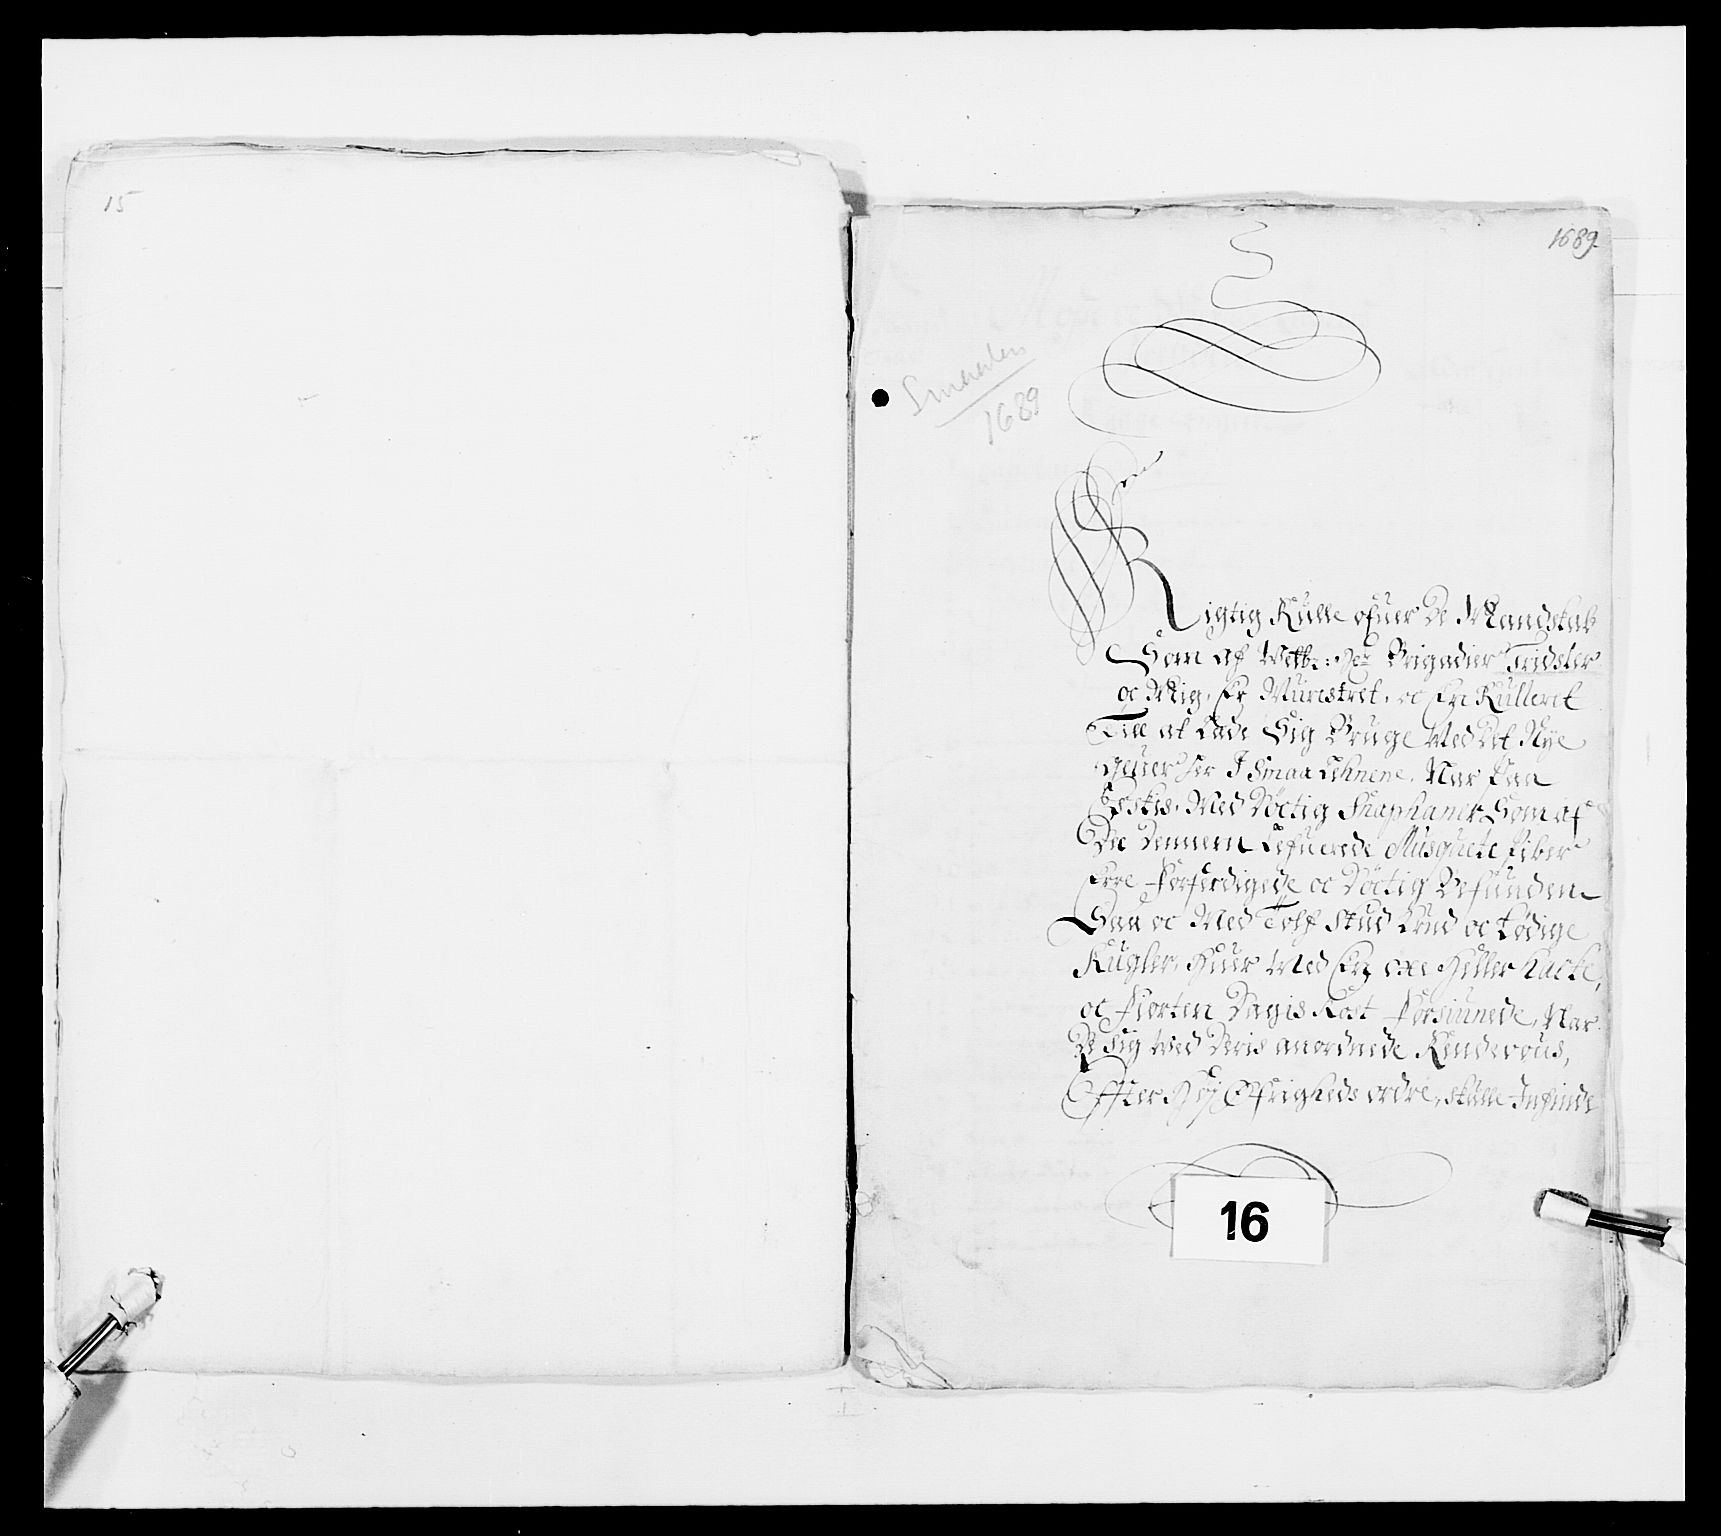 15
1689
Smaalen
1689
Rigtig Rulle ofuer De Mandskab
Som af Welb: Her Brigadier Tridsler
oc Mig, Er Munstret, oc Ere Rullerit
Till at Lade Sig Bruge Med Det Nye
Geuer her I Smaa Lehnene, Nar Paa
Eskis, Med Döctig Snaphaner Som af
De Dennem Lefuerede Musquete Piber
Ere Forferdigede oc Döctig Befunden
Saa oc Med Tolf Skud Krud oc Lödige
Kugler, Huer Med En oxe Heller Hacke,
oc Fiorten Dagis Kost Forsiunede, Nar
De Sig Ved Deris anordnede Rendevous,
Effter Høj Øfrigheds ordre, skulle Infinde
16